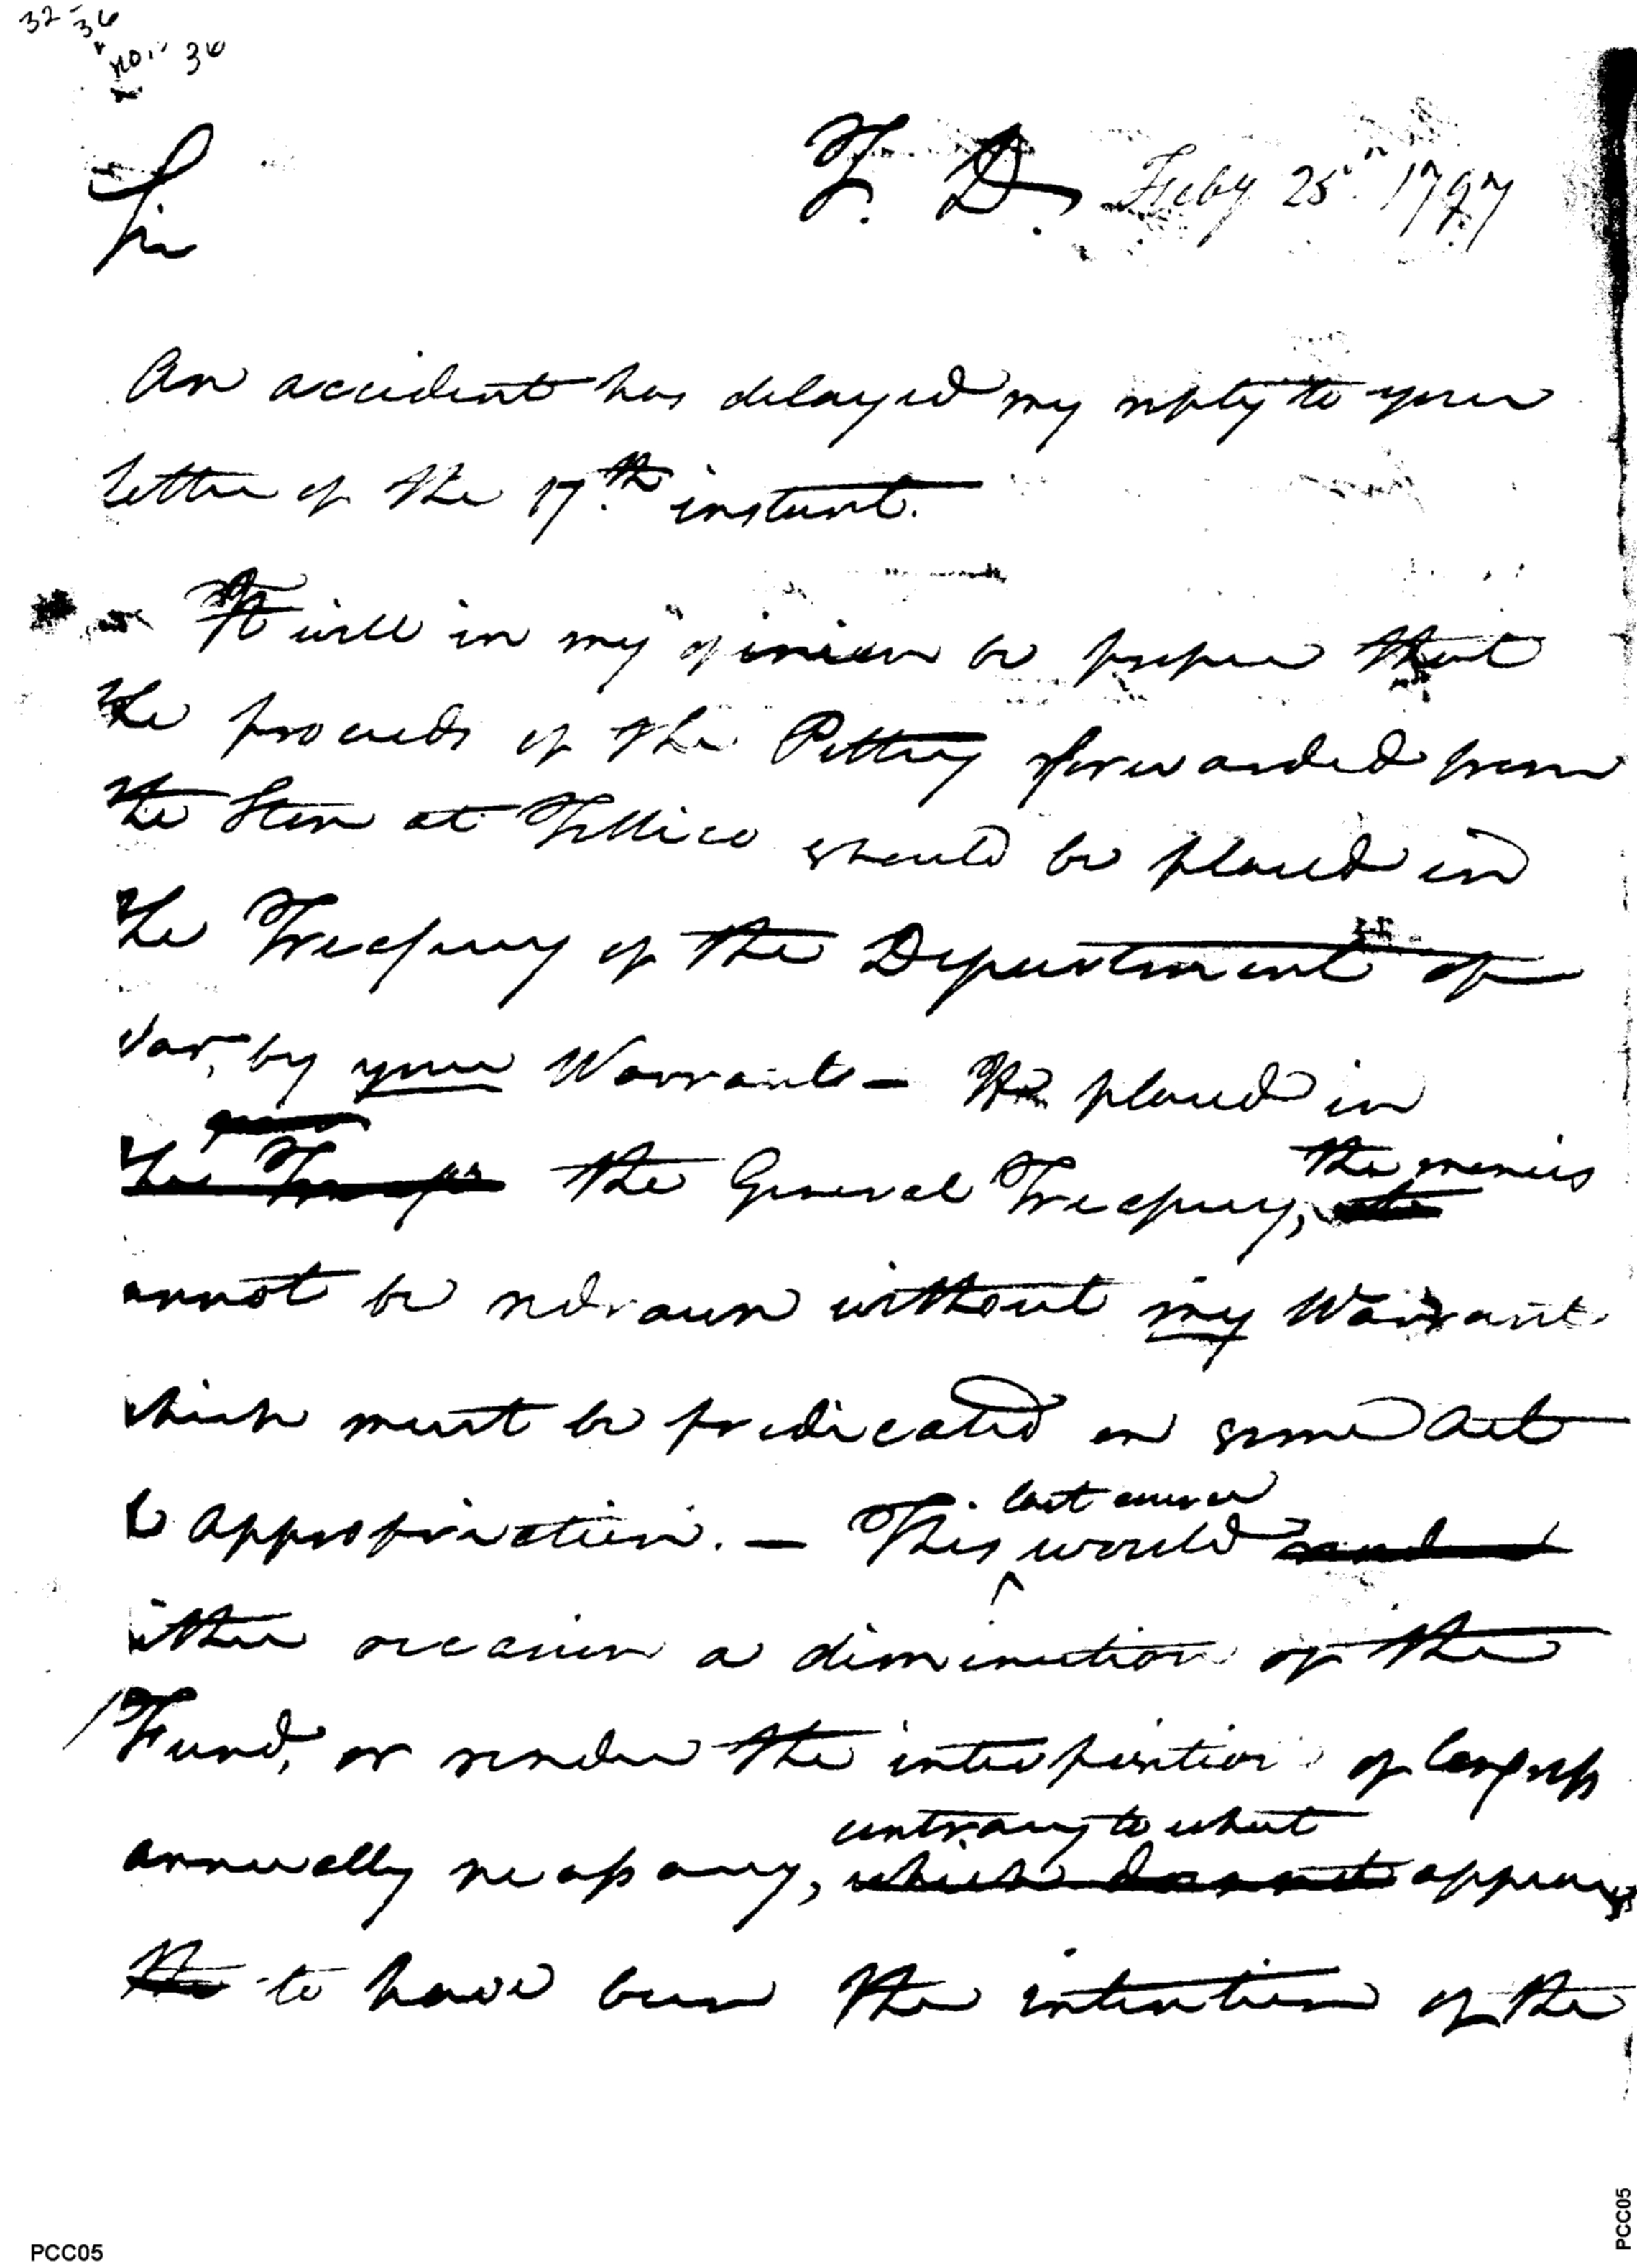 32-36
No. 36
Sir
T. D. Feby 25th 1797
An accident has delayed my reply to your
letter of the 17th instant.
It will in my opinion be proper that
the proceeds of the Peltry forwarded from
the Store at Tellico should be placed in
the Treasury of the Department of
War, by your Warrant – If placed in
the Treasy the General Treasury, the monies
annot be redrawn without my Warrant
which must be predicated on some Act
of appropriation. – This last course would
either occasion a diminution of the
Fund, or render the interposition of Congress
annually necessary, contrary to what
which does not appears
to have been the intention of the
PCC05
PCC05